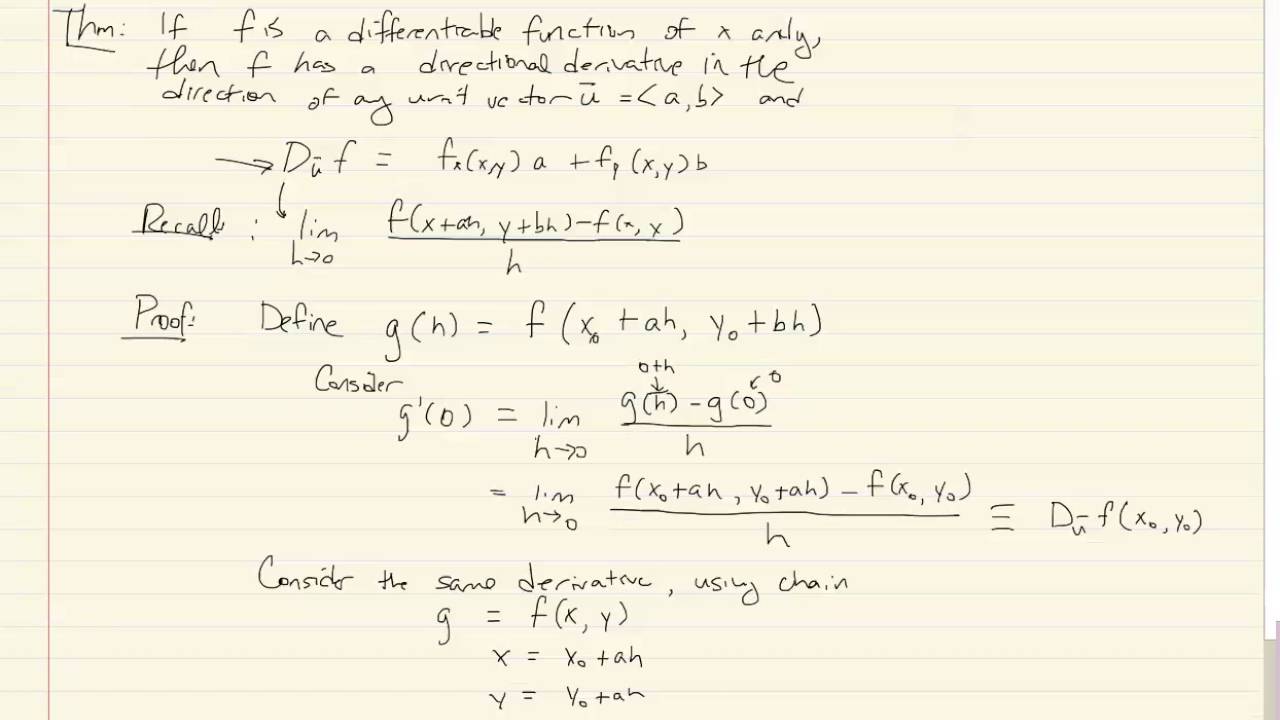 Thm: If f is a differentiable function of x and y,
then f has a directional derivative in the
direction of any unit vector ū = <a, b> and
→ D_ū f = f_x(x,y) a + f_y (x,y) b
Recall : lim_{h→0} (f(x+ah, y+bh) - f(x, y)) / h
Proof: Define g(h) = f(x_0 + ah, y_0 + bh)
Consider
0+h 0
g'(0) = lim_{h→0} (g(h) - g(0)) / h
= lim_{h→0} (f(x_0+ah, y_0+ah) - f(x_0, y_0)) / h ≡ D_ū f(x_0, y_0)
Consider the same derivative, using chain
g = f(x, y)
x = x_0 + ah
y = y_0 + ah